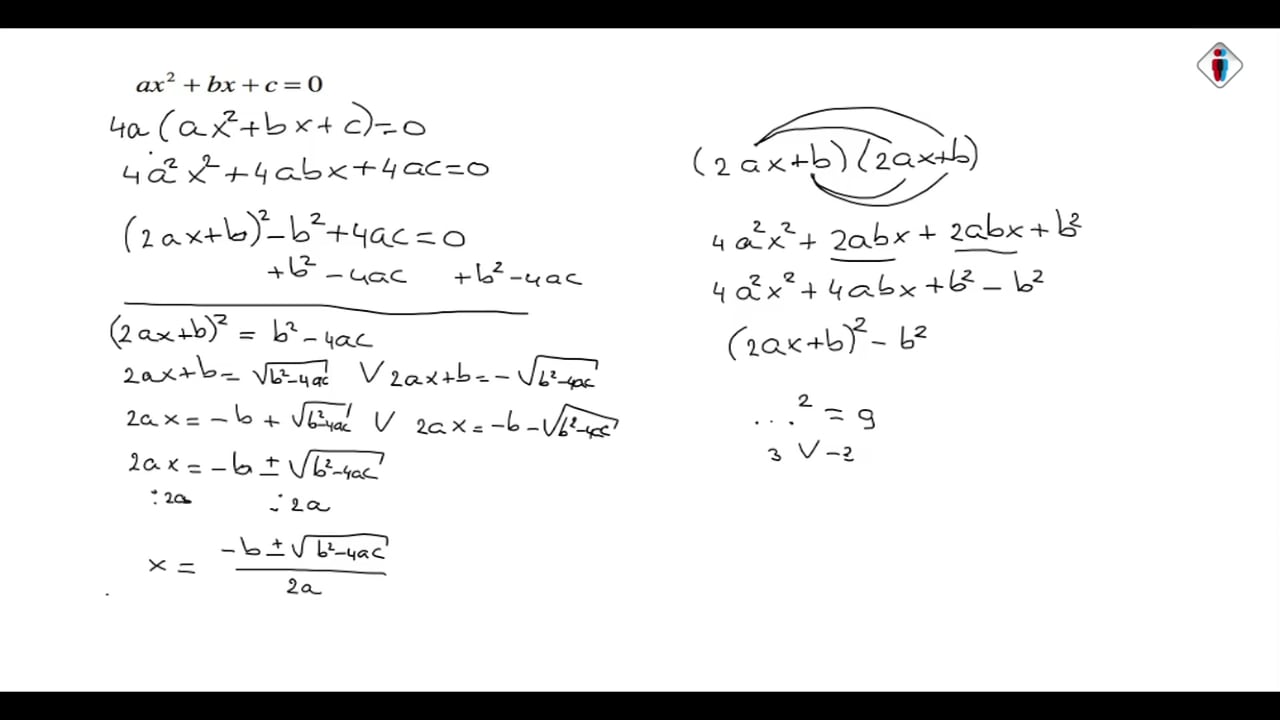 ax² + bx + c = 0
4a(ax²+bx+c)=0
4a²x²+4abx+4ac=0
(2ax+b)²-b²+4ac=0
+b²-4ac +b²-4ac
(2ax+b)² = b²-4ac
2ax+b=√(b²-4ac) V 2ax+b=-√(b²-4ac)
2ax=-b+√(b²-4ac) V 2ax=-b-√(b²-4ac)
2ax=-b±√(b²-4ac)
:2a :2a
x = (-b±√(b²-4ac))/(2a)
(2ax+b)(2ax+b)
4a²x²+2abx+2abx+b²
4a²x²+4abx+b²-b²
(2ax+b)²-b²
...² = 9
3 V -3